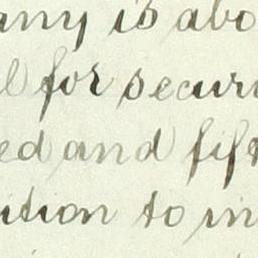 any is abo
l for secur
ed and fif
ition to in